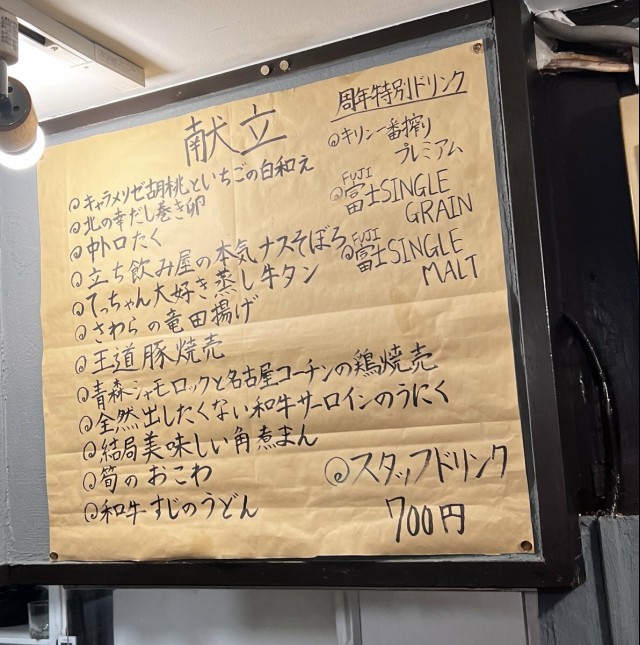 献立
◎キャラメリゼ胡桃といちごの白和え
◎北の幸だし巻き卵
◎中トロたく
◎立ち飲み屋の本気ナスそぼろ
◎てっちゃん大好き蒸し牛タン
◎さわらの竜田揚げ
◎王道豚焼売
◎青森シャモロックと名古屋コーチンの鶏焼売
◎全然出したくない和牛サーロインのうにく
◎結局美味しい角煮まん
◎筍のおこわ
◎和牛すじのうどん
周年特別ドリンク
◎キリン一番搾り
プレミアム
FUJI
◎富士SINGLE
GRAIN
FUJI
◎富士SINGLE
MALT
◎スタッフドリンク
700円